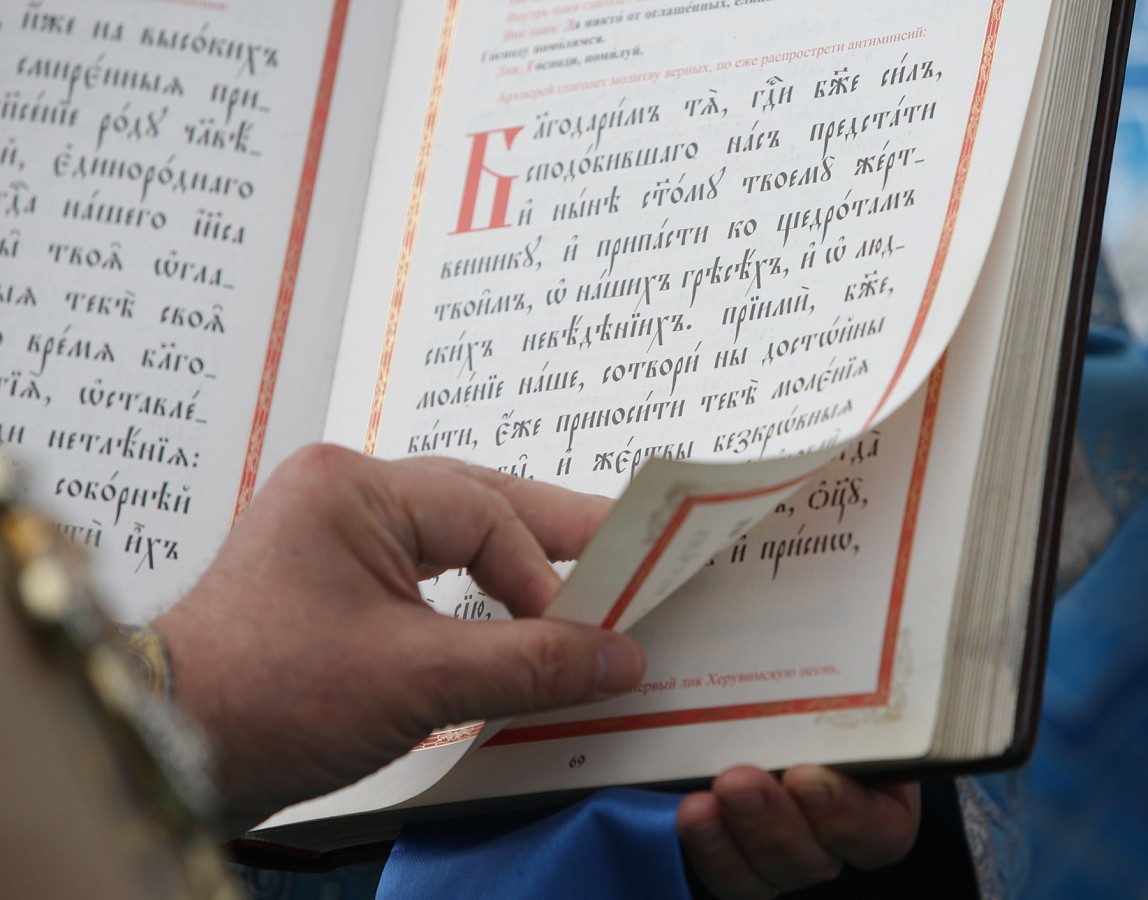 и҆́же на высо́кихъ
смире́нныѧ при-
сп҃се́нїе ро́дꙋ чл҃вѣ́-
є҆диноро́днаго
на́шего і҆и҃са
твоѧ̑ ѡ҆гла-
тебѣ̀ своѧ̑
вре́мѧ бл҃го-
ѡ҆ставле́-
нетлѣ́нїѧ:
собо́рнѣй
и҆̀хъ
Внутрь
Вне лика: Да никто́ от оглаше́нных, ели́цы
Го́споду помо́лимся.
Лик: Го́споди, поми́луй.
Архиерей глаголет молитву верных, по еже распрострети антиминсий:
Бл҃годари́мъ тѧ̀, гдⷭ҇и бж҃е си́лъ,
сподо́бившаго на́съ предста́ти
и҆ ны́нѣ ст҃о́мꙋ твоемꙋ̀ же́рт-
веннику, и҆ припа́сти ко щедро́тамъ
твои̑мъ, ѡ҆ на́шихъ грѣсѣ́хъ, и҆ ѡ҆ люд-
ски́хъ невѣ́дѣнїихъ. прїимѝ, бж҃е,
моле́нїе на́ше, сотвори́ ны досто́йны
бы́ти, є҆́же приноси́ти тебѣ̀ моле́нїѧ
и҆ же́ртвы безкро́вныѧ
ѻ҆ц҃ꙋ̀,
и҆ при́снѡ,
первый лик Херувимскую песнь,
69